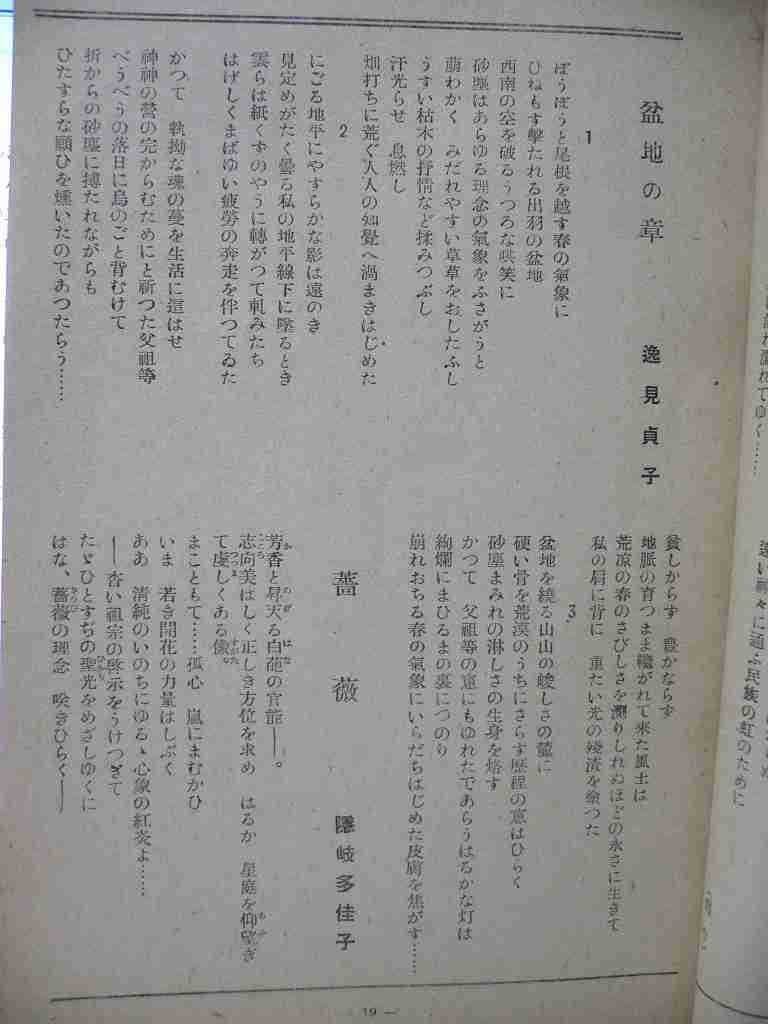 盆地の章
逸見貞子
1
ぼうぼうと尾根を越す春の氣象に
ひねもす擊たれる出羽の盆地
西南の空を破るうつろな哄笑に
砂塵はあらゆる理念の氣象をふさがうと
萠わかく　みだれやすい草草をおしたふし
うすい枯木の抒情など揉みつぶし
汗光らせ　息燃し
畑打ちに荒ぐ人人の知覺へ渦まきはじめた
2
にごる地平にやすらかな影は遠のき
見定めがたく曇る私の地平線下に墜るとき
雲らは紙くずのやうに轉がつて軋みたち
はげしくまばゆい疲勞の奔走を伴つてゐた
かつて　執拗な魂の蔓を生活に這はせ
神神の營の完からむためにと祈つた父祖等
べうべうの落日に鳥のごと背むけて
折からの砂塵に搏たれながらも
ひたすらな願ひを燻いたのであつたらう……
3
貧しからず　豐かならず
地脈の育つまま穰がれて來た風土は
荒凉の春のさびしさを測りしれぬほどの永さに生きて
私の肩に背に　重たい光の殘渣を塗つた
盆地を繞る山山の峻しさの麓に
硬い骨を荒漠のうちにさらす歷程の窓はひらく
砂塵まみれの淋しさの生身を烙す
かつて　父祖等の窓にもゆれたであらうはるかな灯は
絢爛にまひるまの裏につのり
崩れおちる春の氣象にいらだちはじめた皮膚を焦がす……
薔薇
隱岐多佳子
芳香と昇天る白葩の官能――。
志向美はしく正しき方位を求め　はるか　星庭を仰望ぎ
て虔しくある像。
まこともて……孤心　嵐にまむかひ
いま　若き開花の力量はしぶく
ああ　淸純のいのちにゆるゝ心象の紅炎よ……
――杳い祖宗の啓示をうけつぎて
たゞひとすぢの聖光をめざしゆくに
はな、薔薇の理念　咲きひらく――
19 ―
遠い神々に通ふ民族の虹のために